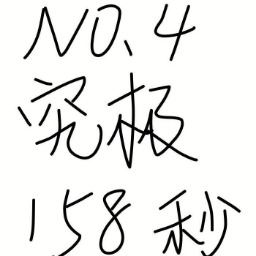 NO.4
究极
158秒